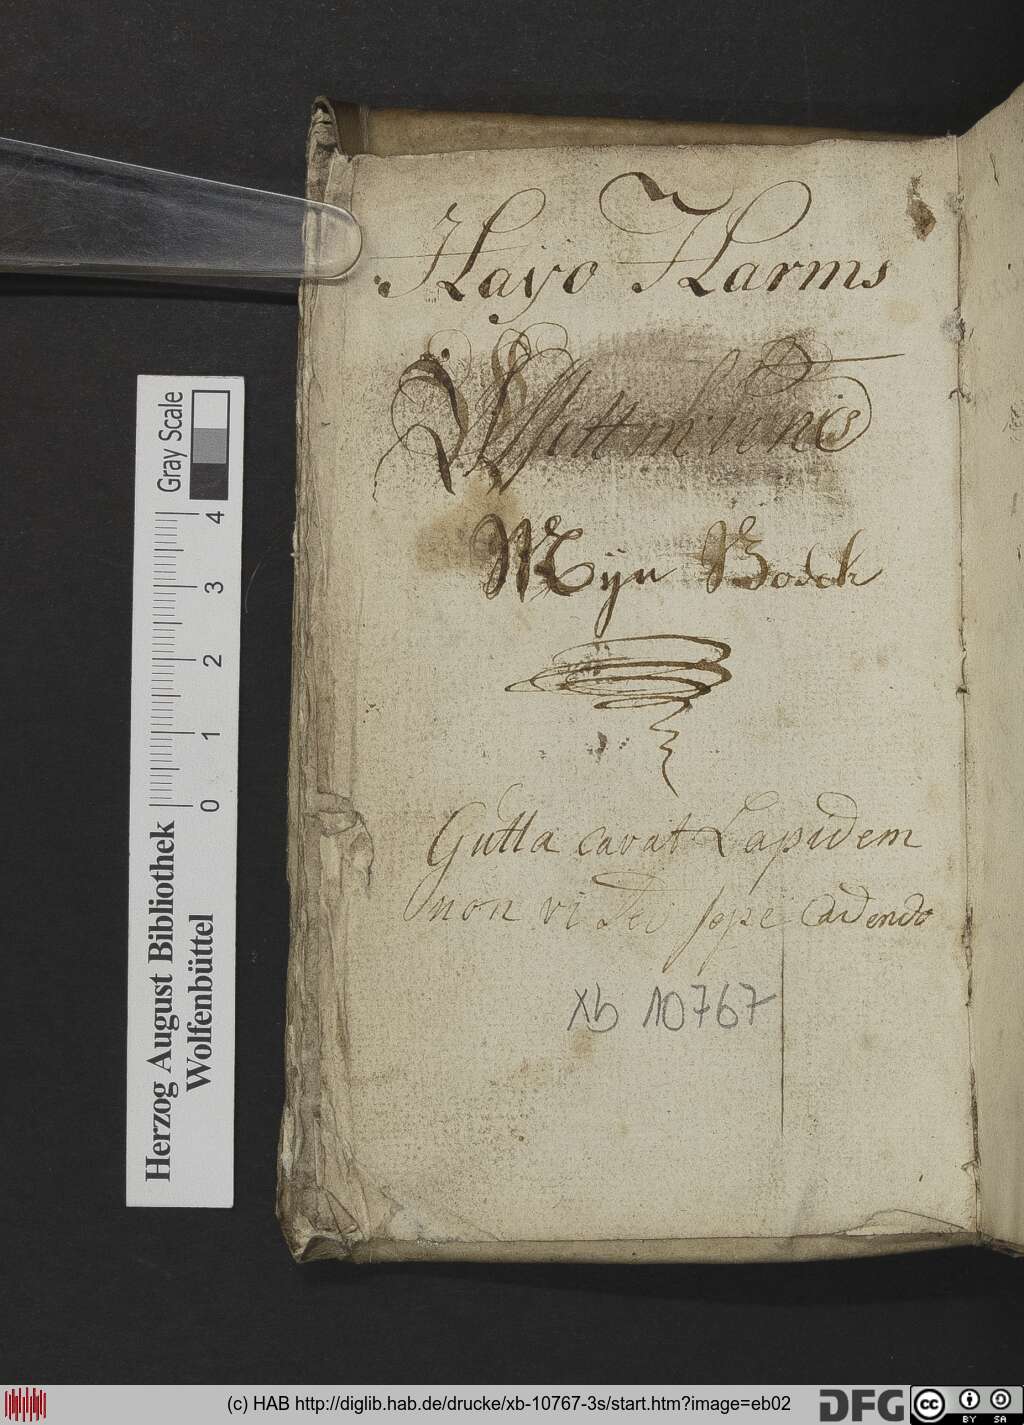 Hayo Harms
Wittmunds
Mÿn Boock
Gutta cavat Lapidem
non vi sed sepe Cadendo
xb 10767
Gray Scale
4
3
2
1
0
Herzog August Bibliothek
Wolfenbüttel
(c) HAB http://diglib.hab.de/drucke/xb-10767-3s/start.htm?image=eb02
DFG
cc
BY SA